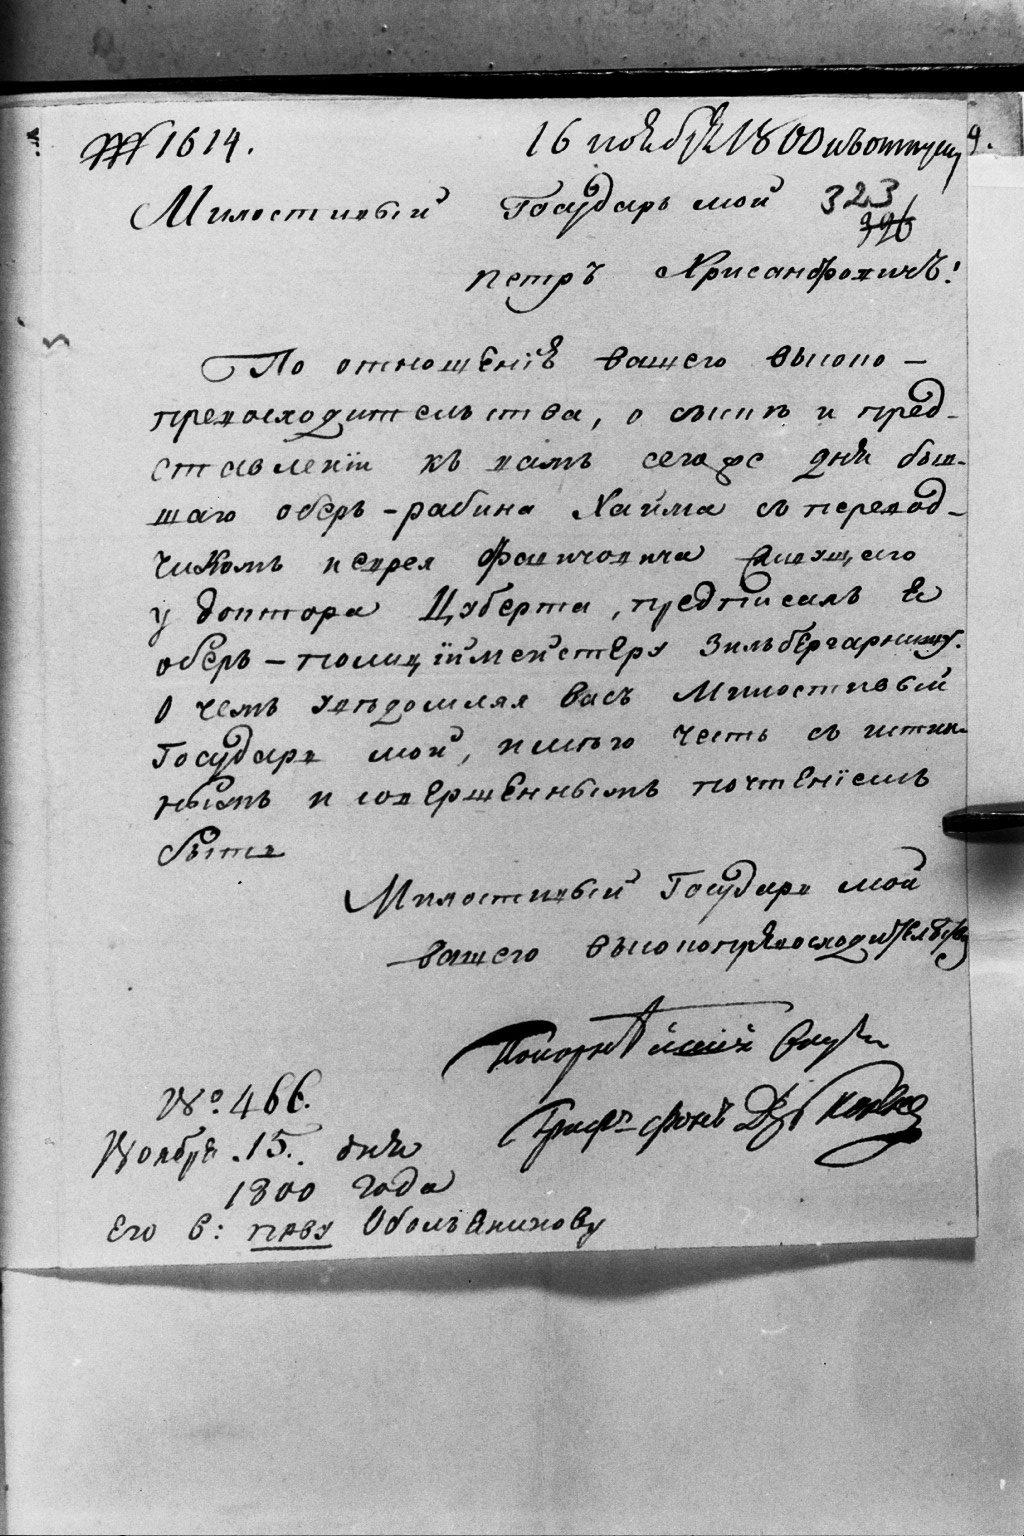 № 1614. 16 ноября 1800 къ отпуску 9.
Милостивый Государь мой 323
396
Петръ Хрисанфовичъ!
По отношенїю вашего высоко-
превосходительства, о сыскѣ и пред-
ставленїи къ вамъ сегожъ дня быв-
шаго оберъ-рабина Хайма съ перевод-
чикомъ
у доктора Цуберта, предписалъ я
оберъ-полицїймейстеру Зильбергарнишу.
О чемъ увѣдомляя васъ Милостивый
Государь мой, имѣю честь съ истин-
нымъ и совершеннымъ почтенїемъ
быть
Милостивый Государь мой
вашего высокопревосходительства
Покорнѣйшїй слуга
Графъ фонъ
№. 466.
Ноября 15. дня
1800 года
Его В: пву Обольянинову